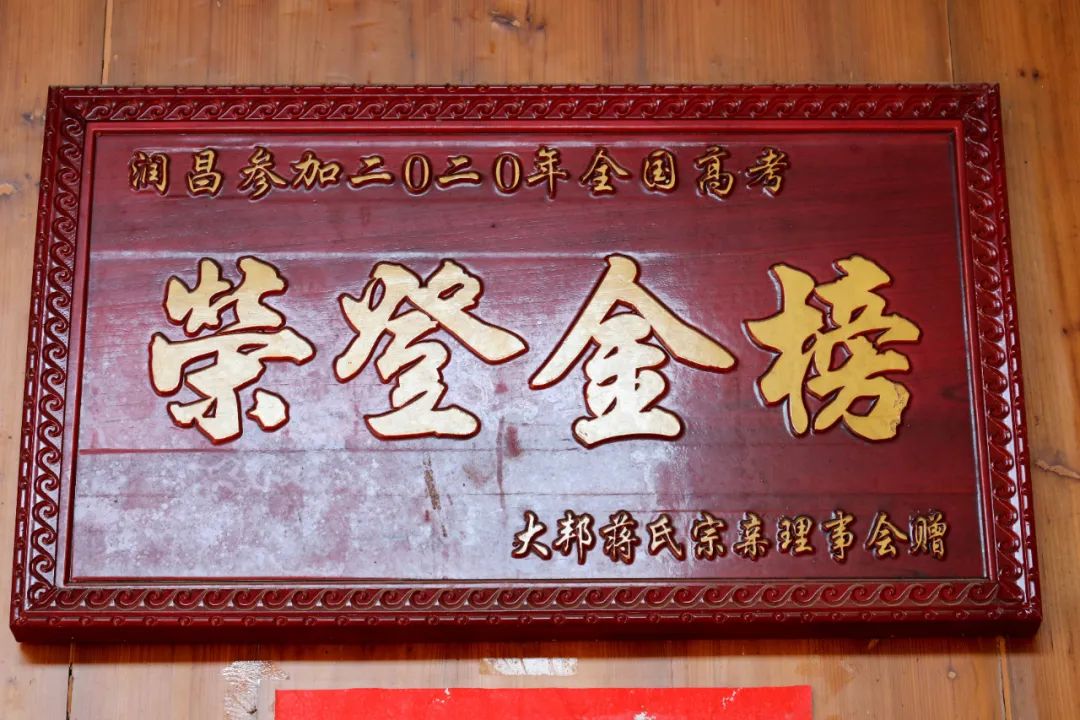 润昌参加二0二0年全国高考
荣登金榜
大邦蒋氏宗亲理事会赠